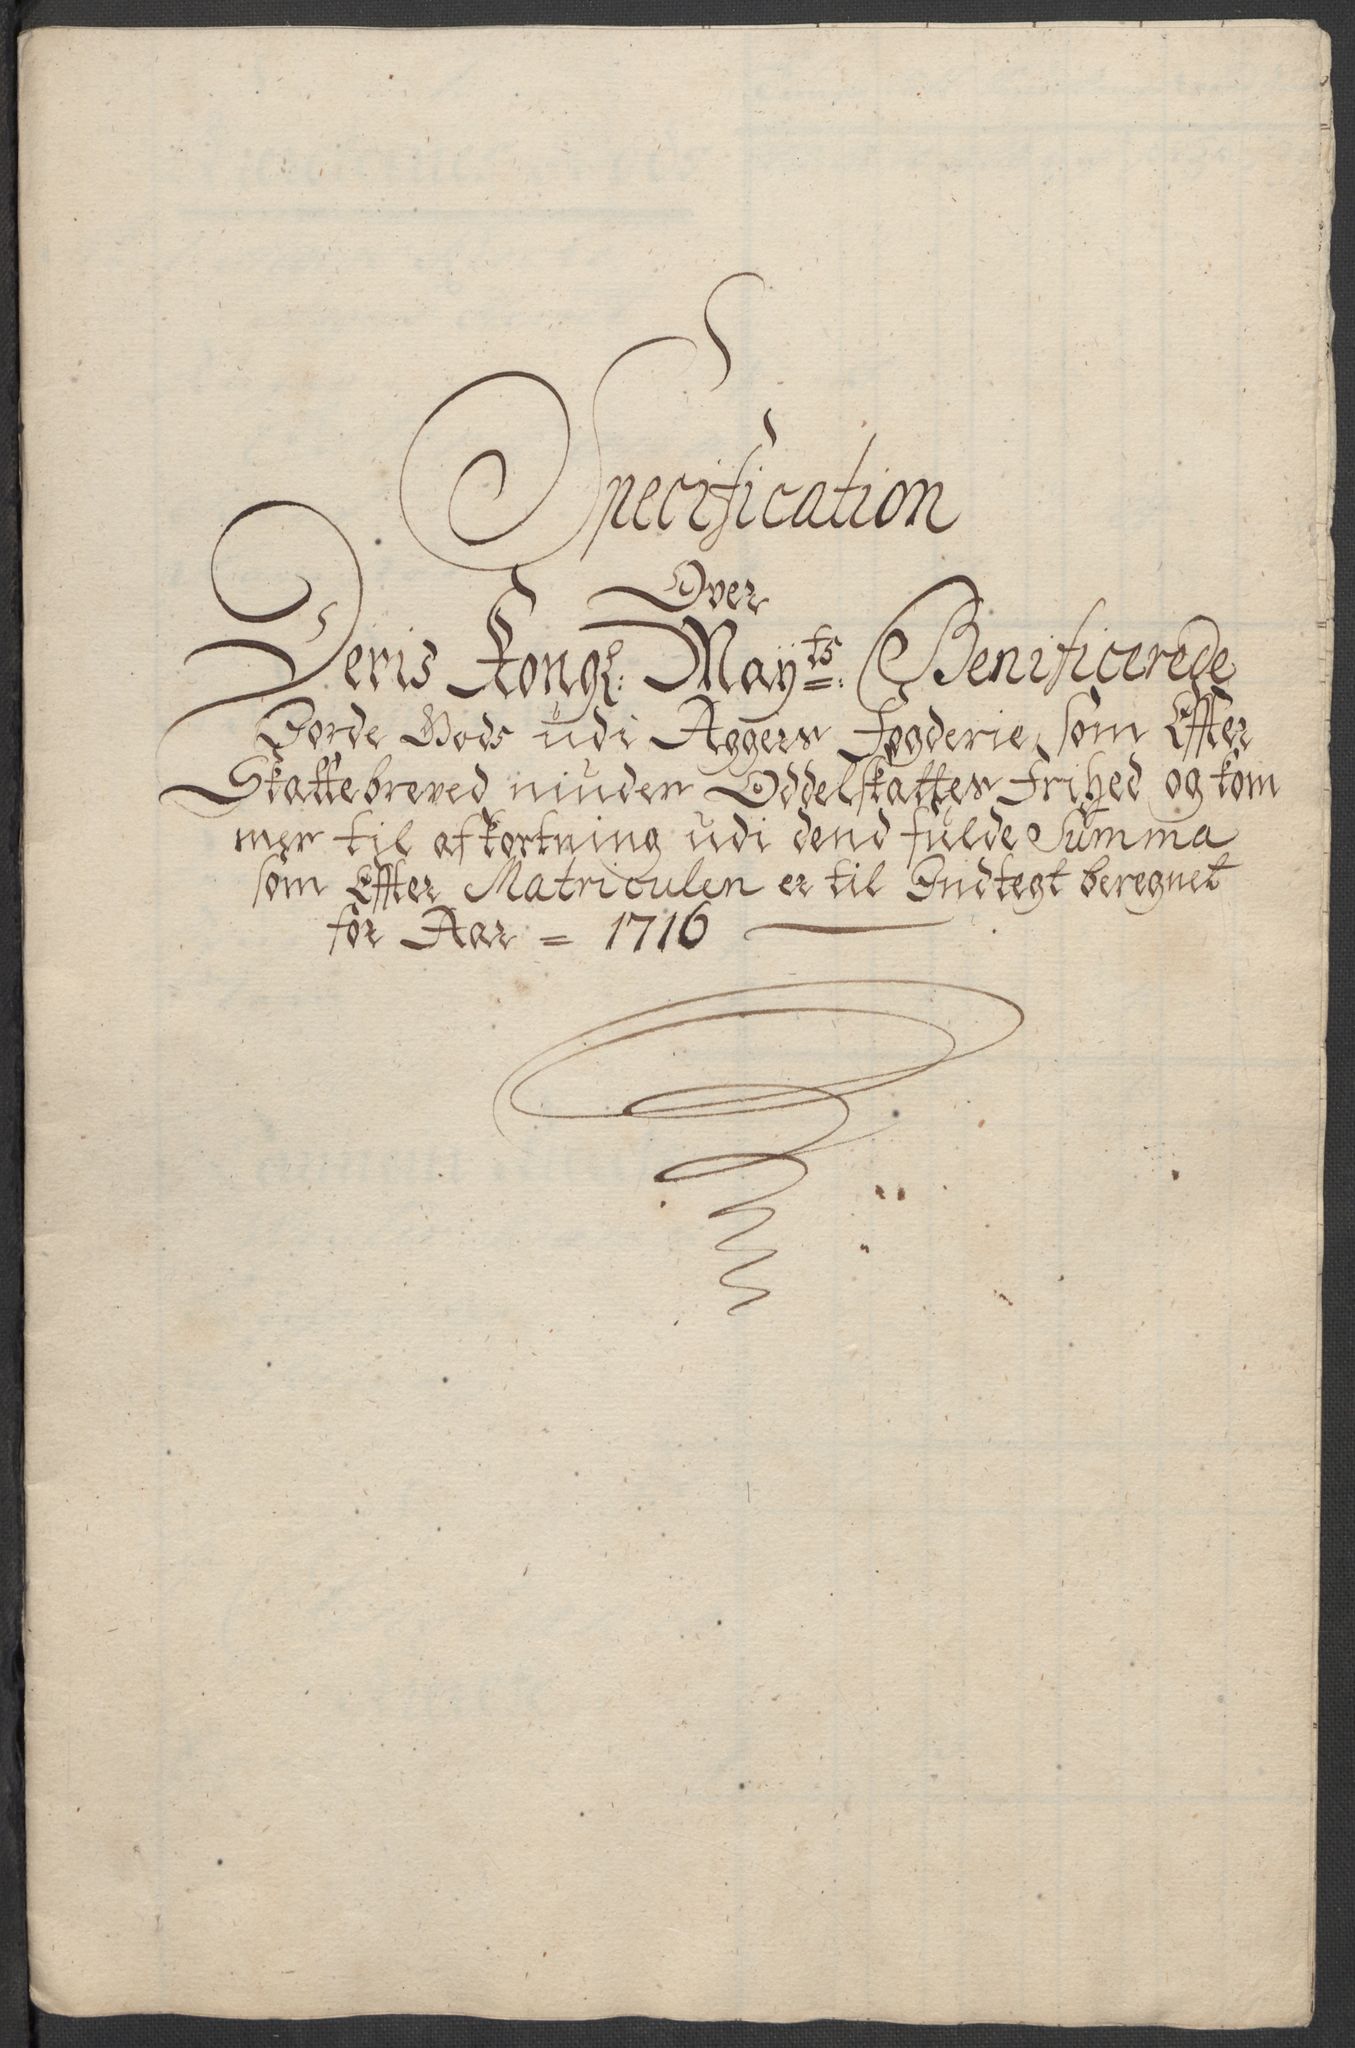 Specification
Over
Deris Kongl: Maÿts: Benificerede
Jorde Gods udi Aggers fogderie, som Effter
Skattebreved niuder Oddelskattes frihed og kom
mer til afkortning udi dend fulde Summa
som Effter Matriculen er til Indtegt beregnet
for Aar = 1716